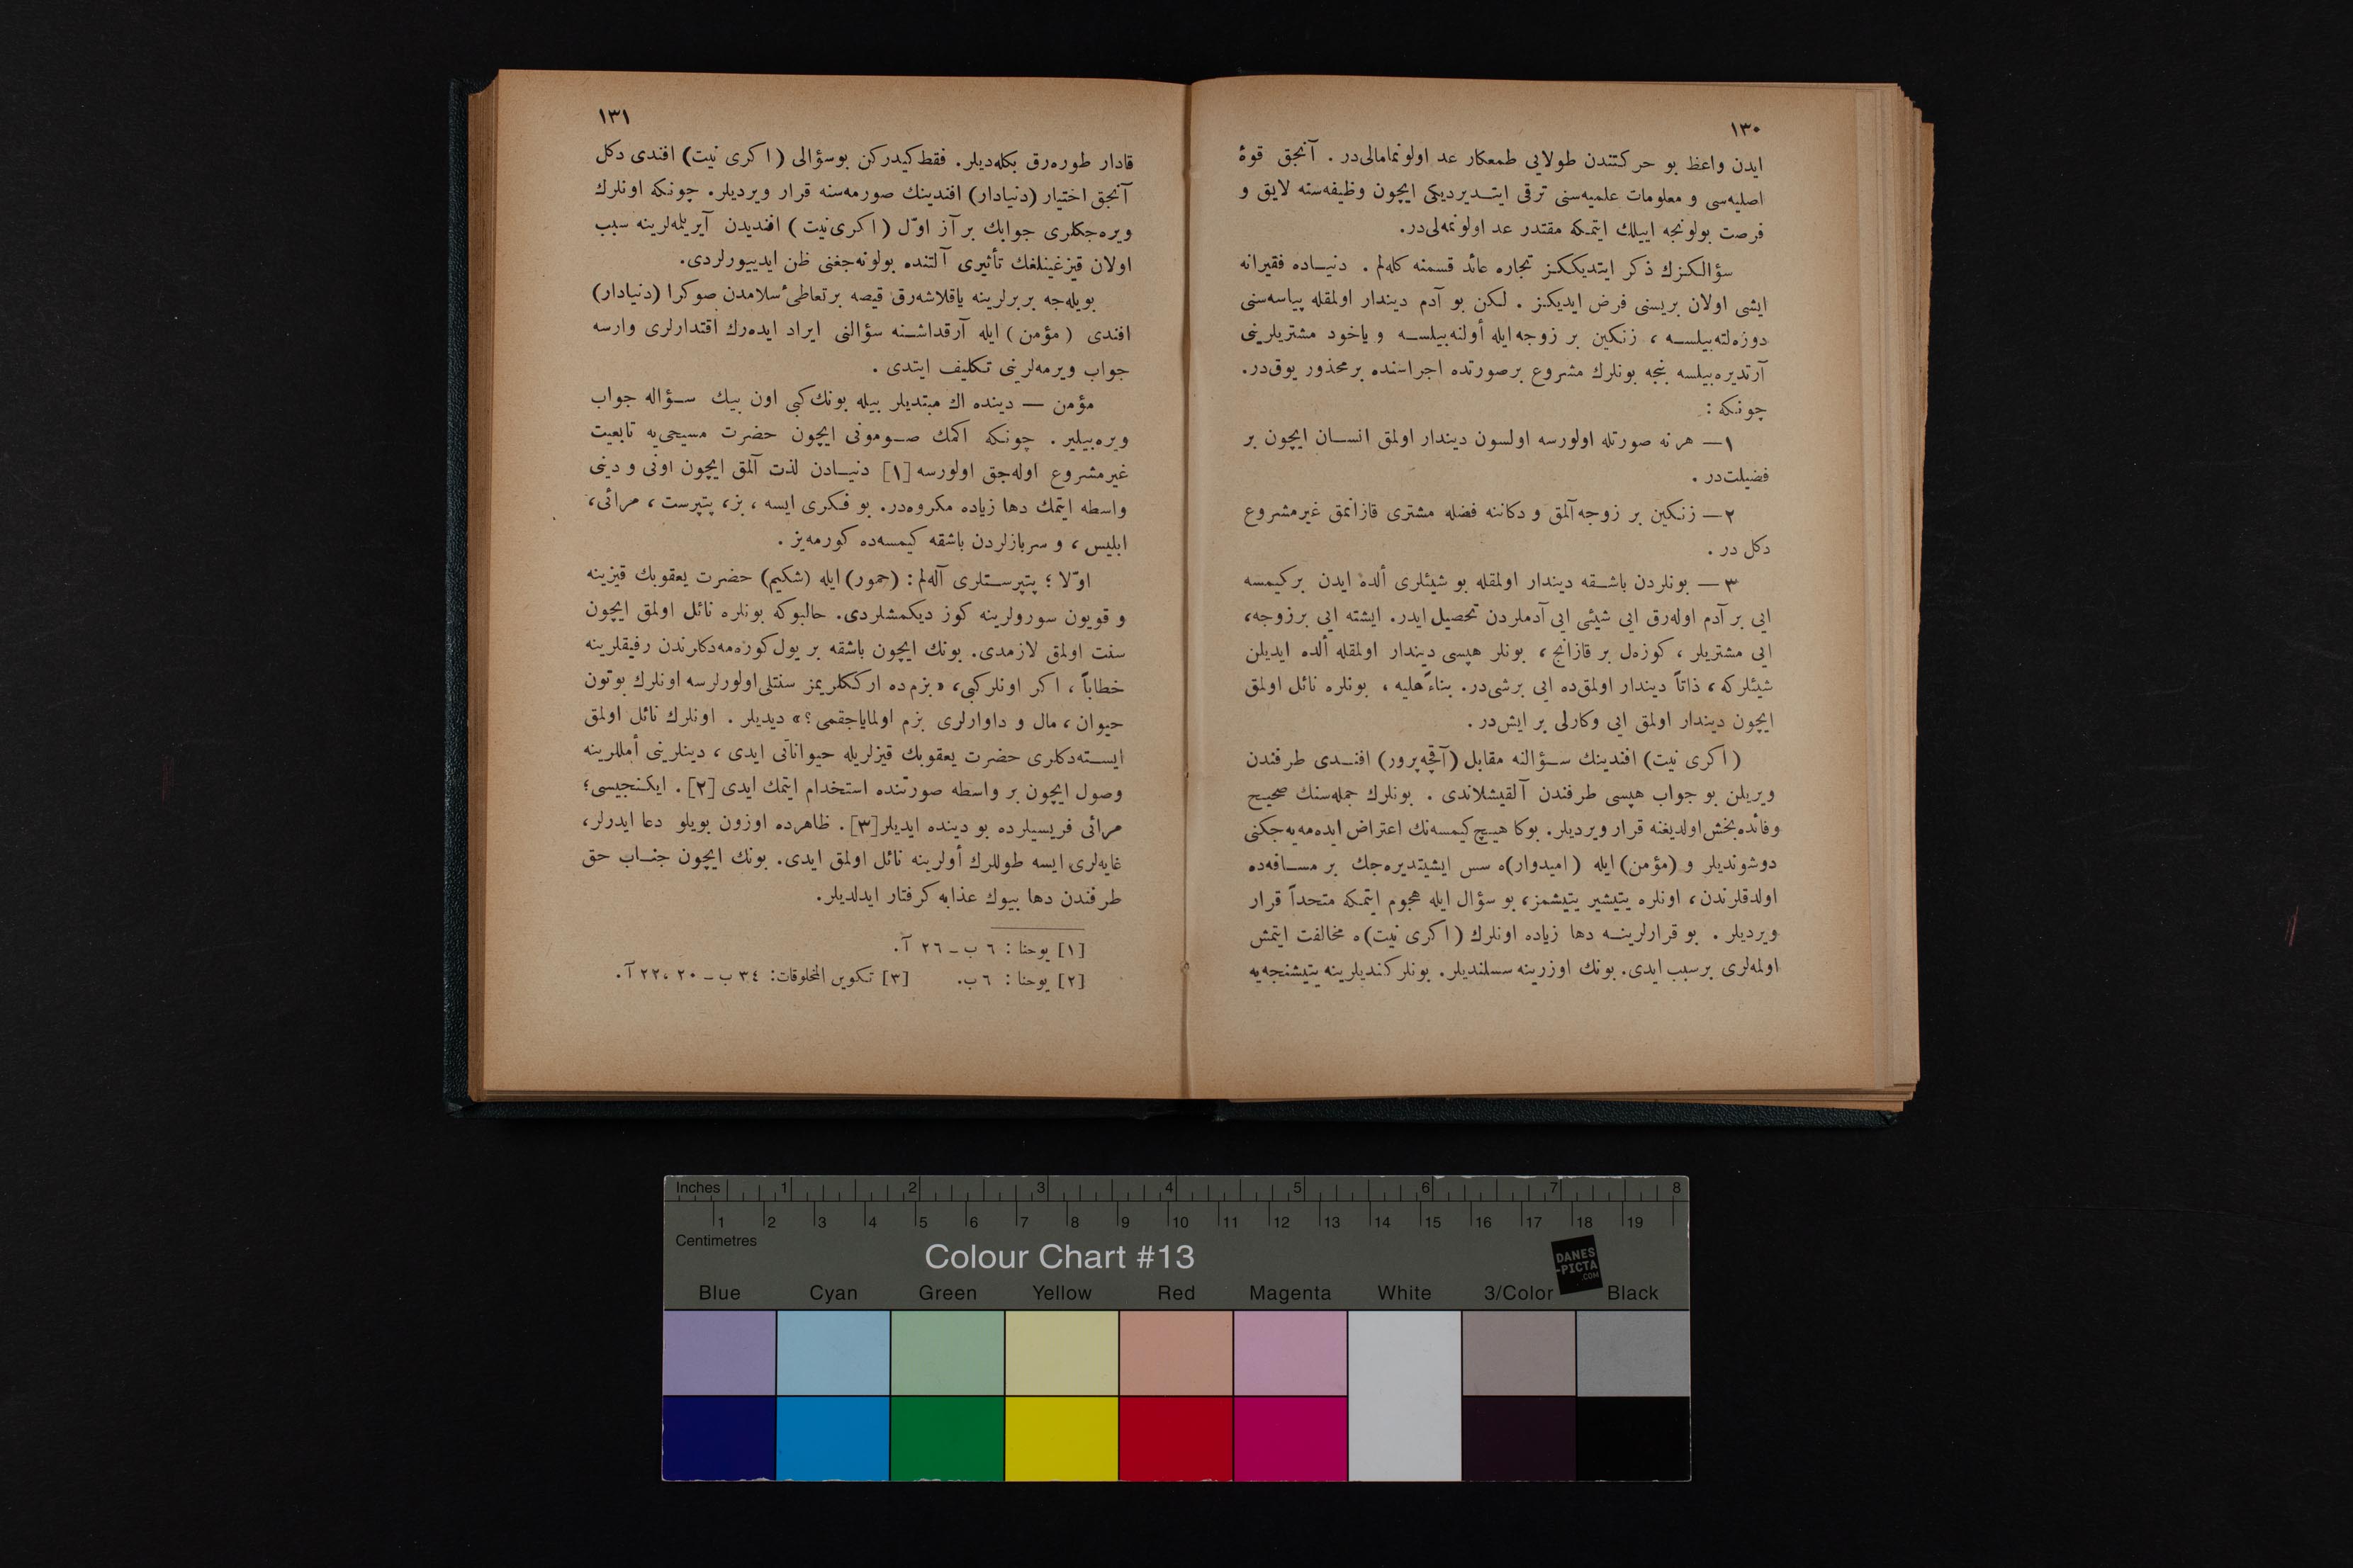 ١٣٠
ايدن واعظ بو حركتندن طولايى طمعكار عد اولونمامالى‌در . آنجق قوهٔ
اصليه‌سى و معلومات علميه‌سنى ترقى ايتــديرديكى ايچون وظيفه‌سنه لايق و
فرصت بولونجه اييلك ايتمكه مقتدر عد اولونمه‌لى‌در.
سؤالكزك ذكر ايتديككز تجاره عائد قسمنه كله‌لم . دنيــاده فقيرانه
ايشى اولان بريسنى فرض ايديكز . لكن بو آدم ديندار اولمقله پياسه‌سنى
دوزه‌لته‌بيلســه ، زنكين بر زوجه ايله أولنه‌بيلســه و ياخود مشتريلرينى
آرتديره‌بيلسه بنجه بونلرك مشروع برصورتده اجراسنده برمحذور يوق‌در.
چونكه :
١— هر نه صورتله اولورسه اولسون ديندار اولمق انســان ايچون بر
فضيلت‌در .
٢— زنكين بر زوجه آلمق و دكاننه فضله مشترى قازانمق غيرمشروع
دكل در .
٣— بونلردن باشــقه ديندار اولمقله بو شيئلرى ألده ايدن بركيمسه
ايى بر آدم اوله‌رق ايى شيئى ايى آدملردن تحصيل ايدر. ايشته ايى برزوجه،
ايى مشتريلر ، كوزه‌ل بر قازانج ، بونلر هپسى ديندار اولمقله ألده ايديلن
شيئلركه ، ذاتاً ديندار اولمق‌ده ايى برشى‌در. بناءً عليه ، بونلره نائل اولمق
ايچون ديندار اولمق ايى وكارلى بر ايش‌در .
(اكرى نيت) افندينك ســؤالنه مقابل (آقچه‌پرور) افنــدى طرفندن
ويريلن بو جواب هپسى طرفندن آلقيشلاندى . بونلرك جمله‌سنك صحيح
وفائده‌بخش اولديغنه قرار ويرديلر. بوكا هيــچ كيمسه‌نك اعتراض ايده‌مه‌يه‌جكنى
دوشونديلر و (مؤمن) ايله (اميدوار)ه سس ايشيتديره‌جك بر مســافه‌ده
اولدقلرندن، اونلره يتيشير يتيشمز، بو سؤال ايله هجوم ايتمكه متحداً قرار
ويرديلر . بو قرارلرينــه دها زياده اونلرك (اكرى نيت)ه مخالفت ايتمش
اولمه‌لرى برسبب ايدى. بونك اوزرينه سسلنديلر. بونلر كنديلرينه يتيشنجه‌يه
١٣١
قادار طوره‌رق بكله‌ديلر. فقط كيدركن بوسؤالى (اكرى نيت) افندى دكل
آنجق اختيار (دنيادار) افندينك صورمه‌سنه قرار ويرديلر. چونكه اونلرك
ويره‌جكلرى جوابك بر آز اوّل (اكرى نيت) افنديدن آيريلمه‌لرينه سبب
اولان قيزغينلغك تأثيرى آلتنده بولونه‌جغنى ظن ايدييورلردى.
بويله‌جه بربرلرينه ياقلاشه‌رق قيصه برتعاطىٔ سلامدن صوكرا (دنيادار)
افندى (مؤمن) ايله آرقداشــنه سؤالنى ايراد ايده‌رك اقتدارلرى وارسه
جواب ويرمه‌لرينى تكليف ايتدى .
مؤمن — دينده اك مبتديلر بيله بونك‌كبى اون بيك ســؤاله جواب
ويره‌بيلير . چونكه اكمك صــومونى ايچون حضرت مسيحى‌يه تابعيت
غيرمشروع اوله‌جق اولورسه [١] دنيــادن لذت آلمق ايچون اونى و دينى
واسطه ايتمك دها زياده مكروه‌در. بو فكرى ايسه ، بز، پتپرست ، مرائى،
ابليس ، و سربازلردن باشقه كيمسه‌ده كورمه‌يز .
اوّلا ؛ پتپرســتلرى آله‌لم : (حمور) ايله (شكيم) حضرت يعقوبك قيزينه
و قويون سورولرينه كوز ديكمشلردى. حالبوكه بونلره نائل اولمق ايچون
سنت اولمق لازمدى. بونك ايچون باشقه بر يول كوره‌مه‌دكلرندن رفيقلرينه
خطاباً ، اكر اونلر كبى، «بزم‌ده اركككلريمز سنتلى اولورلرسه اونلرك بوتون
حيوان ، مال و داوارلرى بزم اولماياجقمى ؟» ديديلر . اونلرك نائل اولمق
ايســته‌دكلرى حضرت يعقوبك قيزلريله حيواناتى ايدى ، دينلرينى أمللرينه
وصول ايچون بر واسطه صورتنده استخدام ايتمك ايدى [٢]. ايكنجيسى؛
مرائى فريسيلرده بو دينده ايديلر[٣]. ظاهرده اوزون بويلو دعا ايدرلر،
غايه‌لرى ايسه طوللرك أولرينه نائل اولمق ايدى. بونك ايچون جنــاب حق
طرفندن دها بيوك عذابه كرفتار ايدلديلر.
[١] يوحنا : ٦ ب ـ ٢٦ آ.
[٢] يوحنا : ٦ ب. [٣] تكوين المخلوقات: ٣٤ ب ـ ٢٠ ،٢٢ آ.
Inches 1 2 3 4 5 6 7 8
1 2 3 4 5 6 7 8 9 10 11 12 13 14 15 16 17 18 19
Centimetres
Colour Chart #13
DANES
-PICTA
.COM
Blue Cyan Green Yellow Red Magenta White 3/Color Black